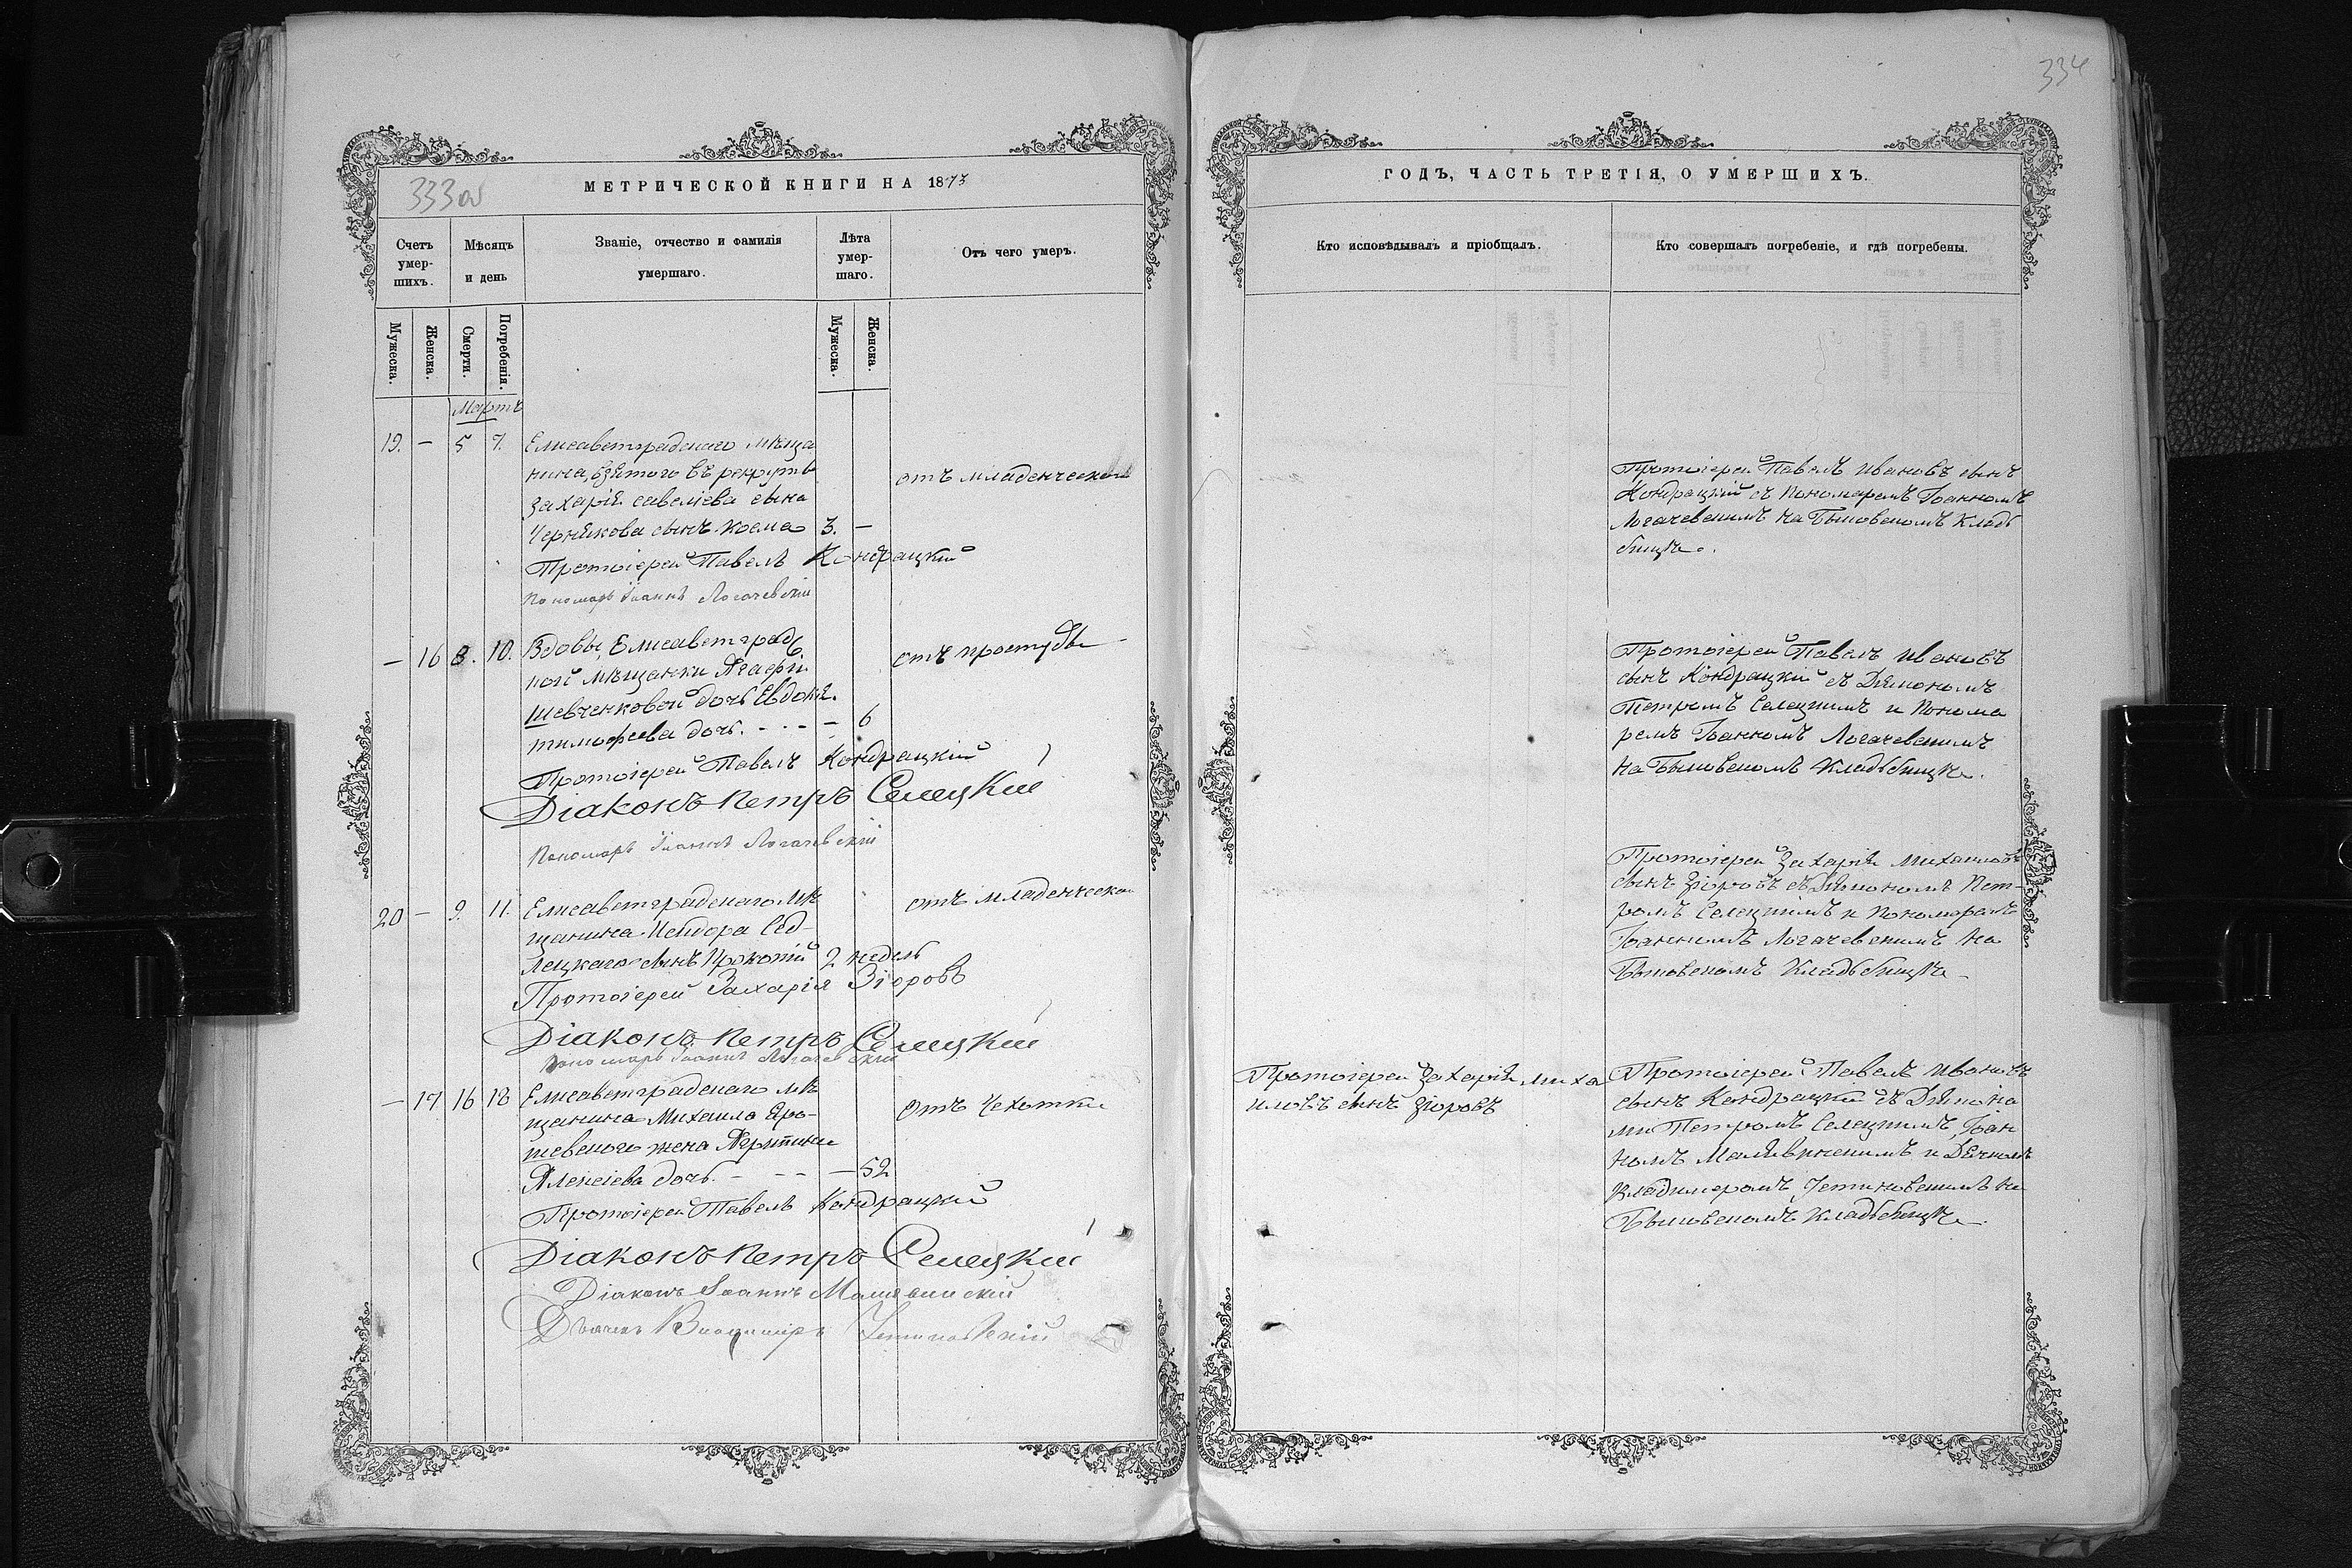 333об
МЕТРИЧЕСКОЙ КНИГИ НА 1873
Счетъ умер-шихъ.
Мѣсяцъ и день
Званіе, отчество и фамилія умершаго.
Лѣта умер-шаго.
Отъ чего умеръ.
Мужеска.
Женска.
Смерти.
Погребенія.
Мужеска.
Женска.
Мартъ
19. — 5 7. Елисаветградскаго мѣща
нина, взятого въ рекруты
Захарія Савеліева сына
Чернякова сынъ Косма 3. —
отъ младенческой
Протоіерей Павелъ Кондрацкій
Пономарь Іоаннъ Логачевскій
— 16 8. 10. Вдовы, Елисаветград
кой мѣщанки Агафіи
Шевченковой дочь Евдокія.
тимофеева дочь. - - - — 6
отъ простуды
Протоіерей Павелъ Кондрацкій
Діаконъ Петръ Селецкій
Пономарь Іоаннъ Логачевскій
20 — 9. 11. Елисаветградскаго мѣ
щанина Исидора Сед-
лецкаго сынъ Прокопій 2 недель
отъ младенческой
Протоіерей Захарія Зіоровъ
Діаконъ Петръ Селецкій
Пономарь Іоаннъ Логачевскій
— 17 16 18 Елисаветградскаго мѣ
щанина Михаила Яро-
шевскаго жена
Алексіева дочь. - - - — 52
отъ Чехотки
Протоіерей Павелъ Кондрацкій
Діаконъ Петръ Селецкій
Діаконъ Іоаннъ Малявинскій
Дьячекъ Владиміръ Устиновскій
334
ГОДЪ, ЧАСТЬ ТРЕТІЯ, О УМЕРШИХЪ.
Кто исповѣдывалъ и пріобщалъ.
Кто совершалъ погребеніе, и гдѣ погребены.
Протоіерей Павелъ Ивановъ сынъ
Кондрацкій съ Пономаремъ Іоанномъ
Логачевскимъ на Быковскомъ Кладь
бищѣ.
Протоіерей Павелъ Ивановъ
сынъ Кондрацкій съ Діякономъ
Петромъ Селецкимъ и Понома
ремъ Іоанномъ Логачевскимъ
на Быковскомъ Кладьбищѣ.
Протоіерей Захарія Михаиловъ
сынъ Зіоровъ съ Діякономъ Пет-
ромъ Селецкимъ и Пономаремъ
Іоанномъ Логачевскимъ на
Быковскомъ Кладьбищѣ
Протоіерей Захарія Миха
иловъ сынъ Зіоровъ
Протоіерей Павелъ Ивановъ
сынъ Кондрацкій съ Діякона
ми Петромъ Селецкимъ, Іоан
номъ Малявинскимъ и Дячкомъ
Владимеромъ Устиновскимъ на
Быковскомъ Кладьбищѣ.